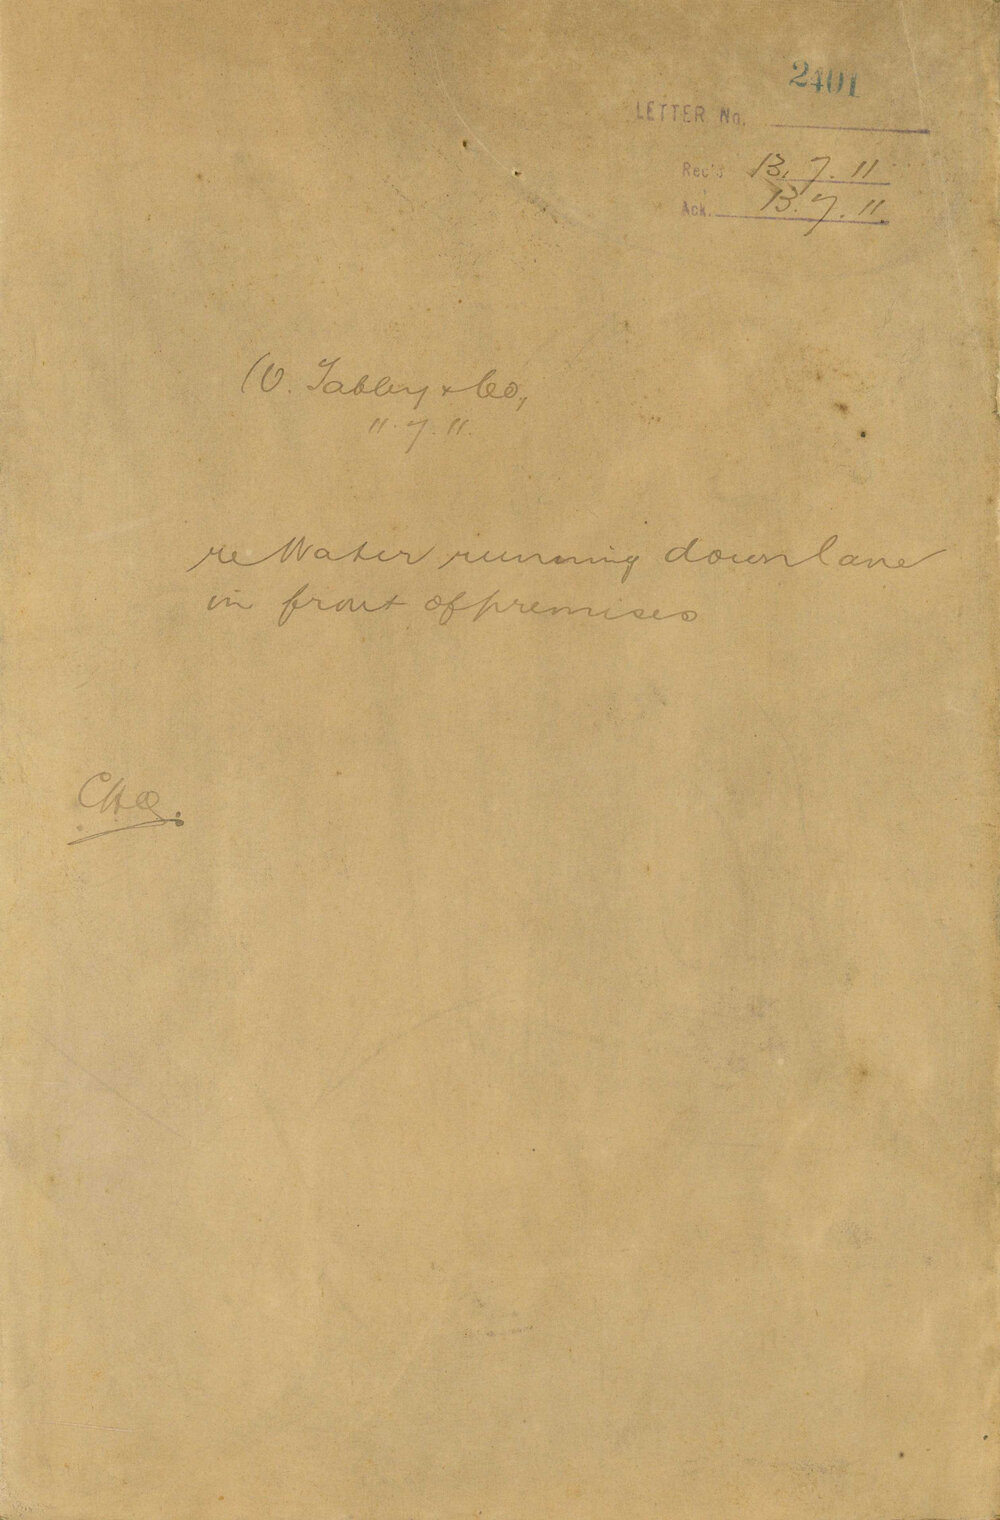 2401
LETTER No.
Rec'd 13.7.11
Ack. 13.7.11
O. Tabley & Co,
11.7.11.
re Water running down lane
in front of premises